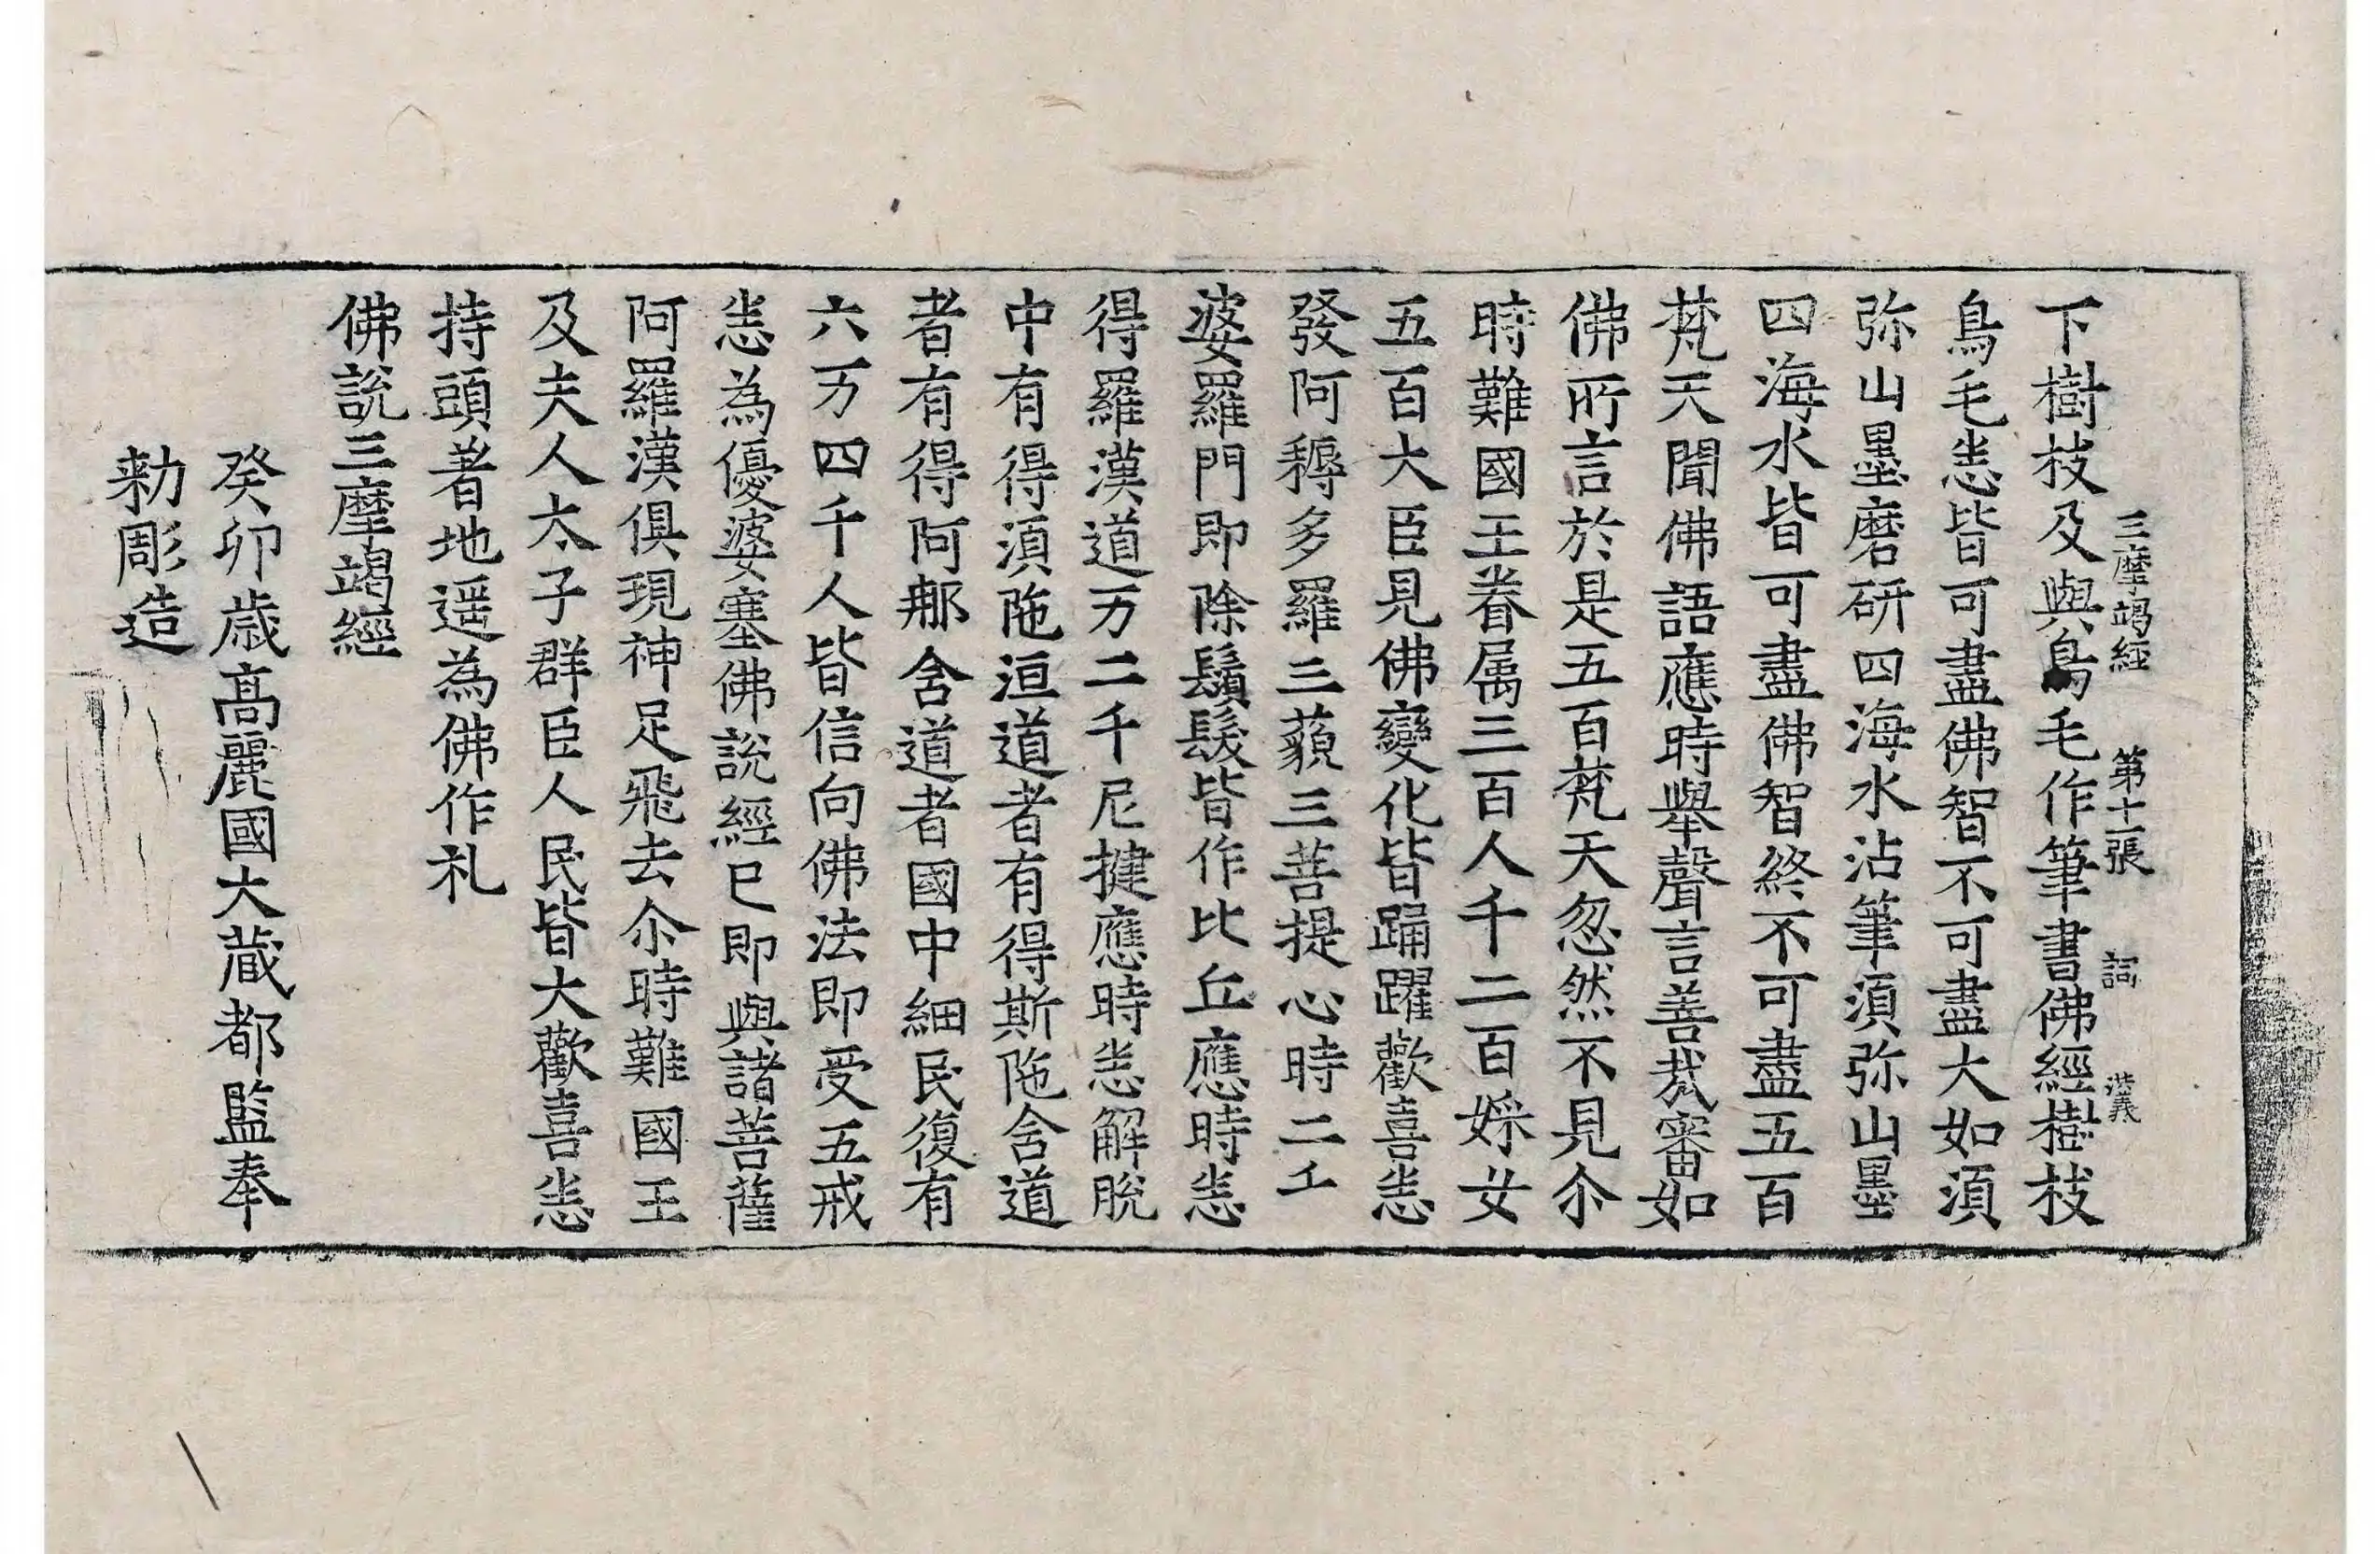 三摩竭經 第十一張 詞 漢義
下樹枝及與鳥毛作筆書佛經樹枝
鳥毛悉皆可盡佛智不可盡大如須
弥山墨磨研四海水沾筆須弥山墨
四海水皆可盡佛智終不可盡五百
梵天聞佛語應時舉聲言善哉審如
佛所言於是五百梵天忽然不見尒
時難國王眷属三百人千二百婇女
五百大臣見佛變化皆踊躍歡喜悉
發阿耨多羅三藐三菩提心時二千
婆羅門即除鬚髮皆作比丘應時悉
得羅漢道万二千尼揵應時悉解脫
中有得須陁洹道者有得斯陁含道
者有得阿那含道者國中細民復有
六万四千人皆信向佛法即受五戒
悉為優婆塞佛說經已即與諸菩薩
阿羅漢俱現神足飛去尒時難國王
及夫人太子群臣人民皆大歡喜悉
持頭著地遥為佛作礼
佛說三摩竭經
癸卯歲高麗國大藏都監奉
勅彫造